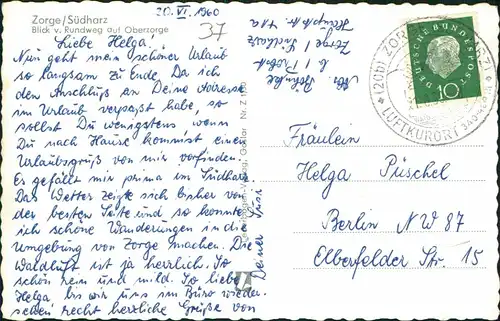 Zorge/Südharz
Blick v. Rundweg auf Oberzorge
20. VI. 1960
37
Liebe Helga!
Nun geht mein schöner Urlaub
so langsam zu Ende. Da ich
den Anschluß an Deine Adresse
im Urlaub verpaßt habe, so
sollst Du wenigstens wenn
Du nach Hause kommst einen
Urlaubsgruß von mir vorfinden.
Es gefällt mir prima im Südharz
Das Wetter zeigte sich bisher von
der besten Seite und so konnte
ich schöne Wanderungen in die
Umgebung von Zorge machen. Die
Waldluft ist ja herrlich. So
schön rein und mild. So liebe
Helga, bis wir uns im Büro wieder-
sehen recht herzliche Grüße von
Deiner
Zorge / Südharz
Hauptstr. 41a
Goslar Nr. Z 1
DEUTSCHE BUNDESPOST
10
(20b) ZORGE
LUFTKURORT
Fräulein
Helga Püschel
Berlin NW 87
Elberfelder Str. 15